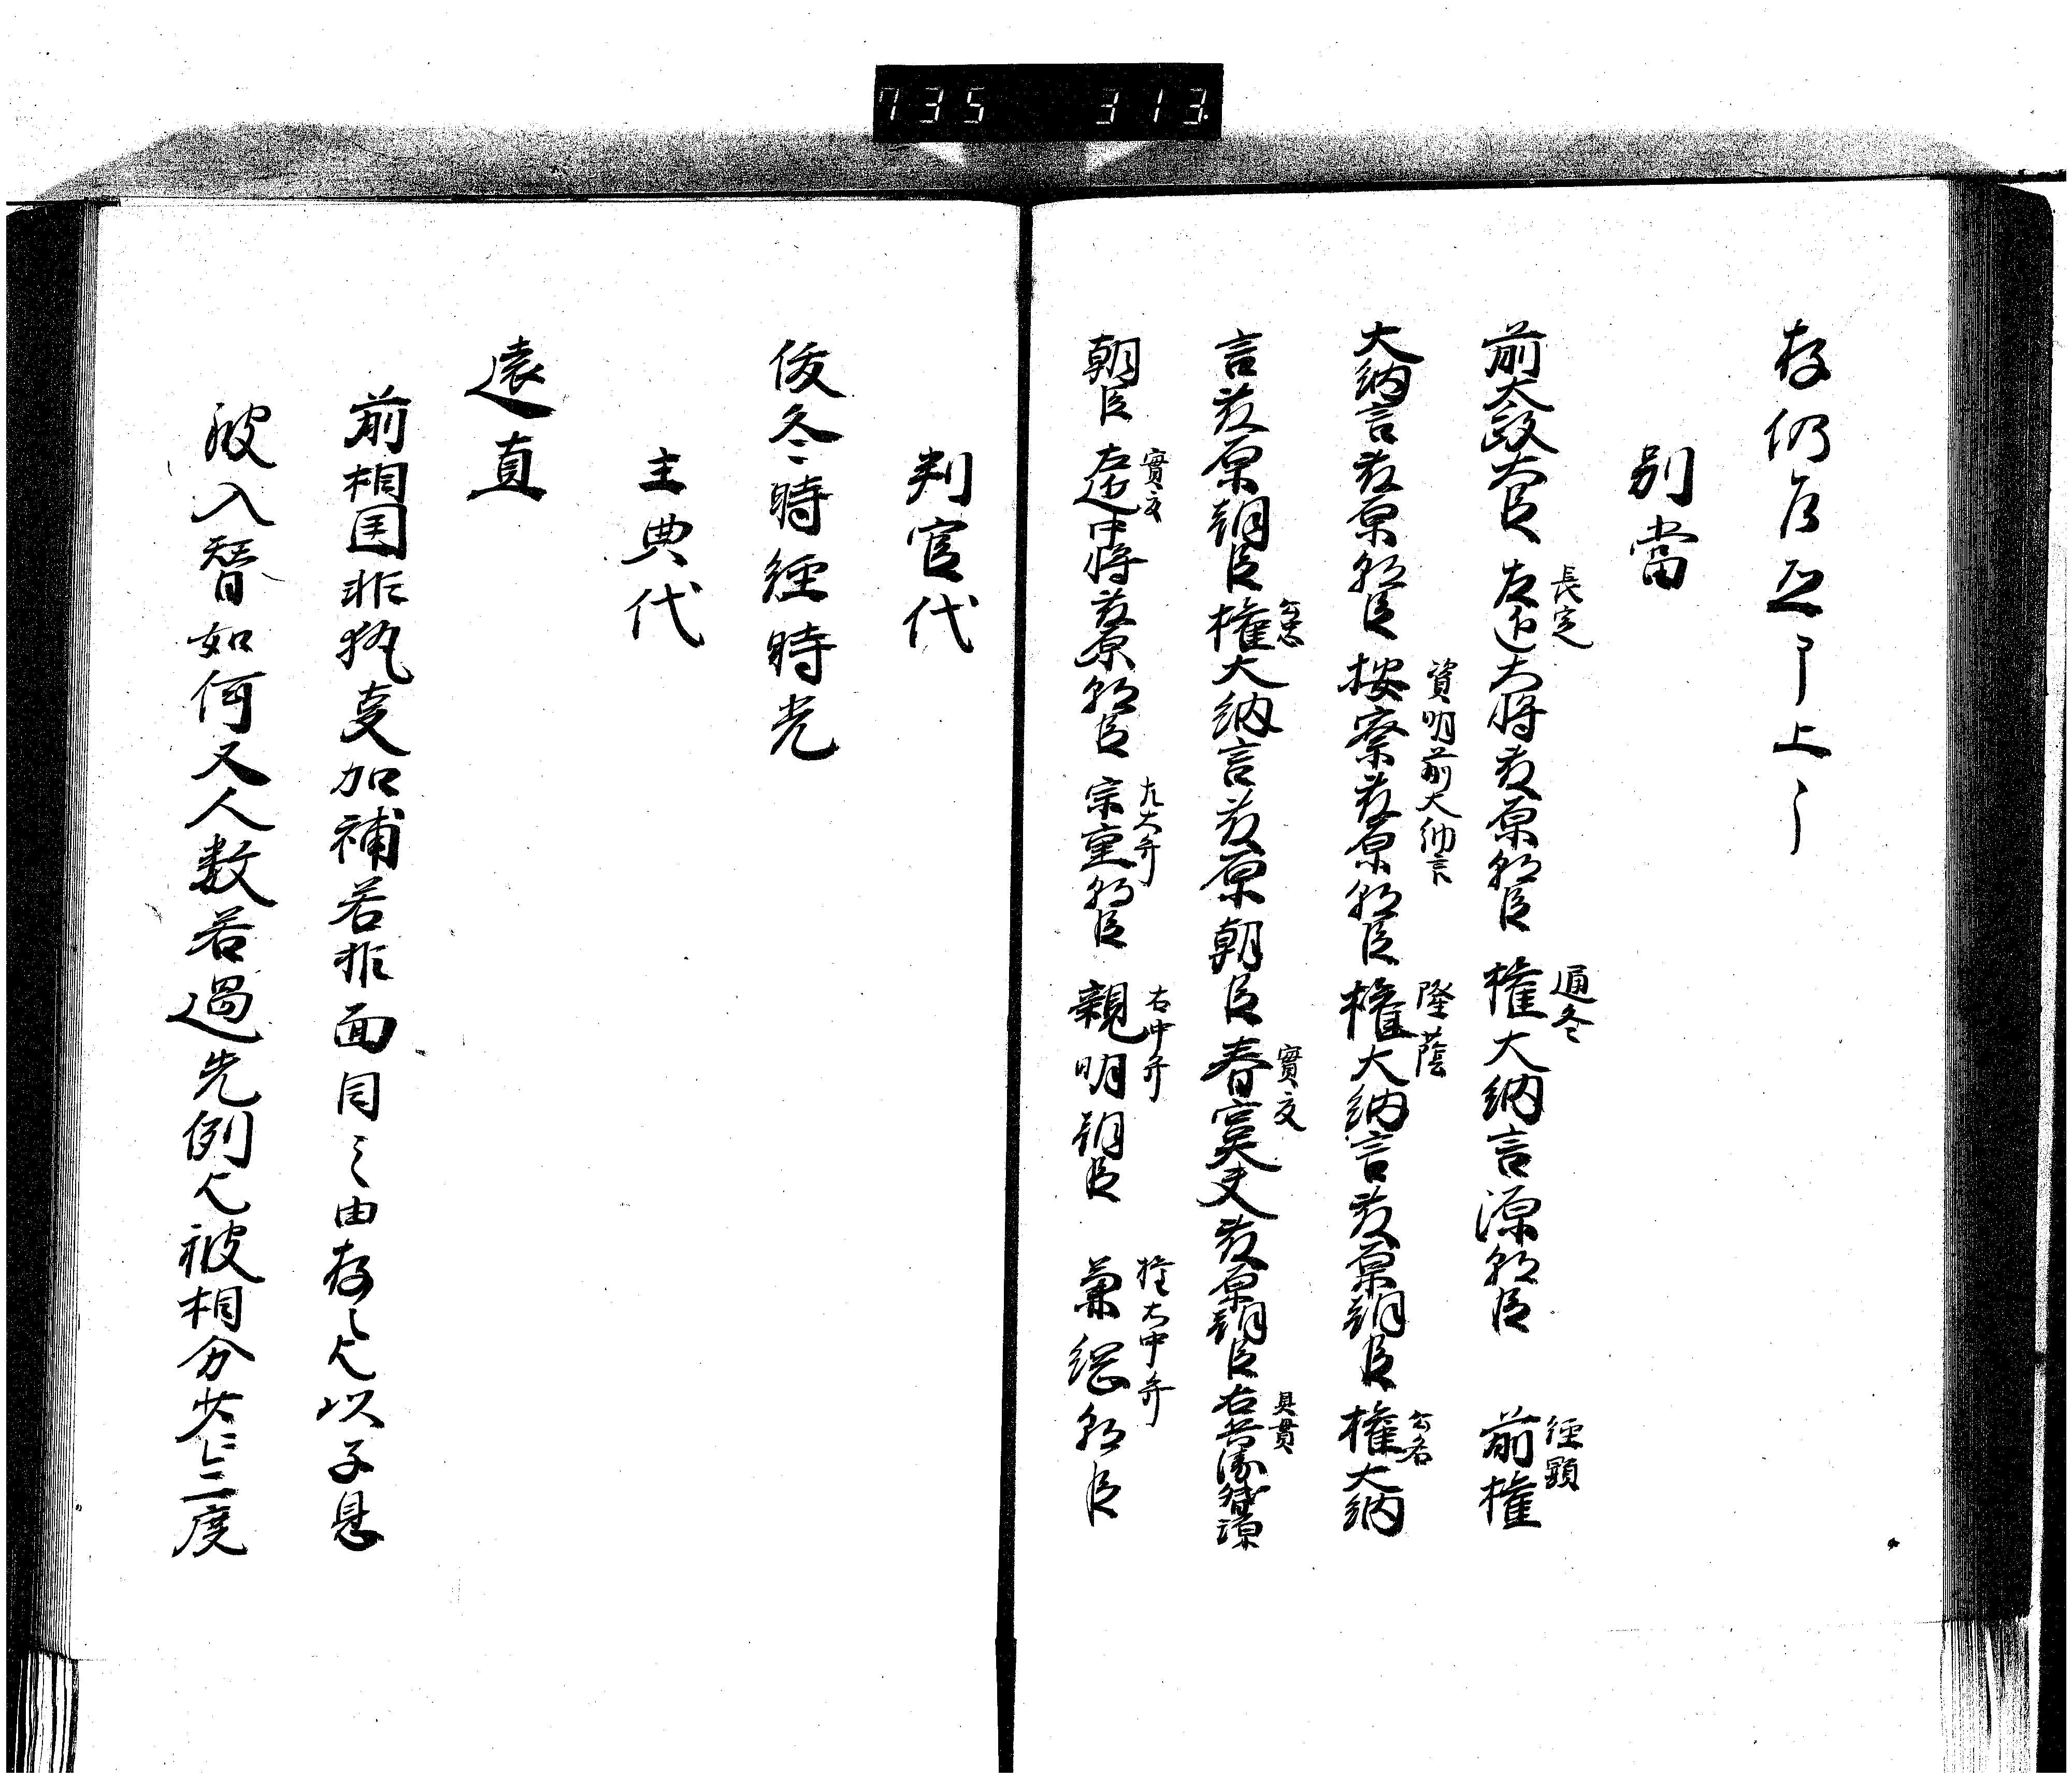 735 313
存仍注左了上之
別當
前太政大臣 左近大将藤原朝臣 権大納言源朝臣 前権
長定 通冬 経顕
大納言藤原朝臣 按察藤原朝臣 権大納言藤原朝臣 権大納
資明前大納言 隆蔭 公名
言藤原朝臣 権大納言藤原朝臣 春宮大夫藤原朝臣 右兵衛督源
公忠 實夏 具貫
朝臣 左近中将藤原朝臣 宗重朝臣 親明朝臣 兼綱朝臣
實文 左大弁 右中弁 権右中弁
判官代
俊冬 時経 時光
主典代
遠直
前相国非執事加補若非面目之由存之欤以子息
被入替如何又人数若過先例欤被相分安否二度